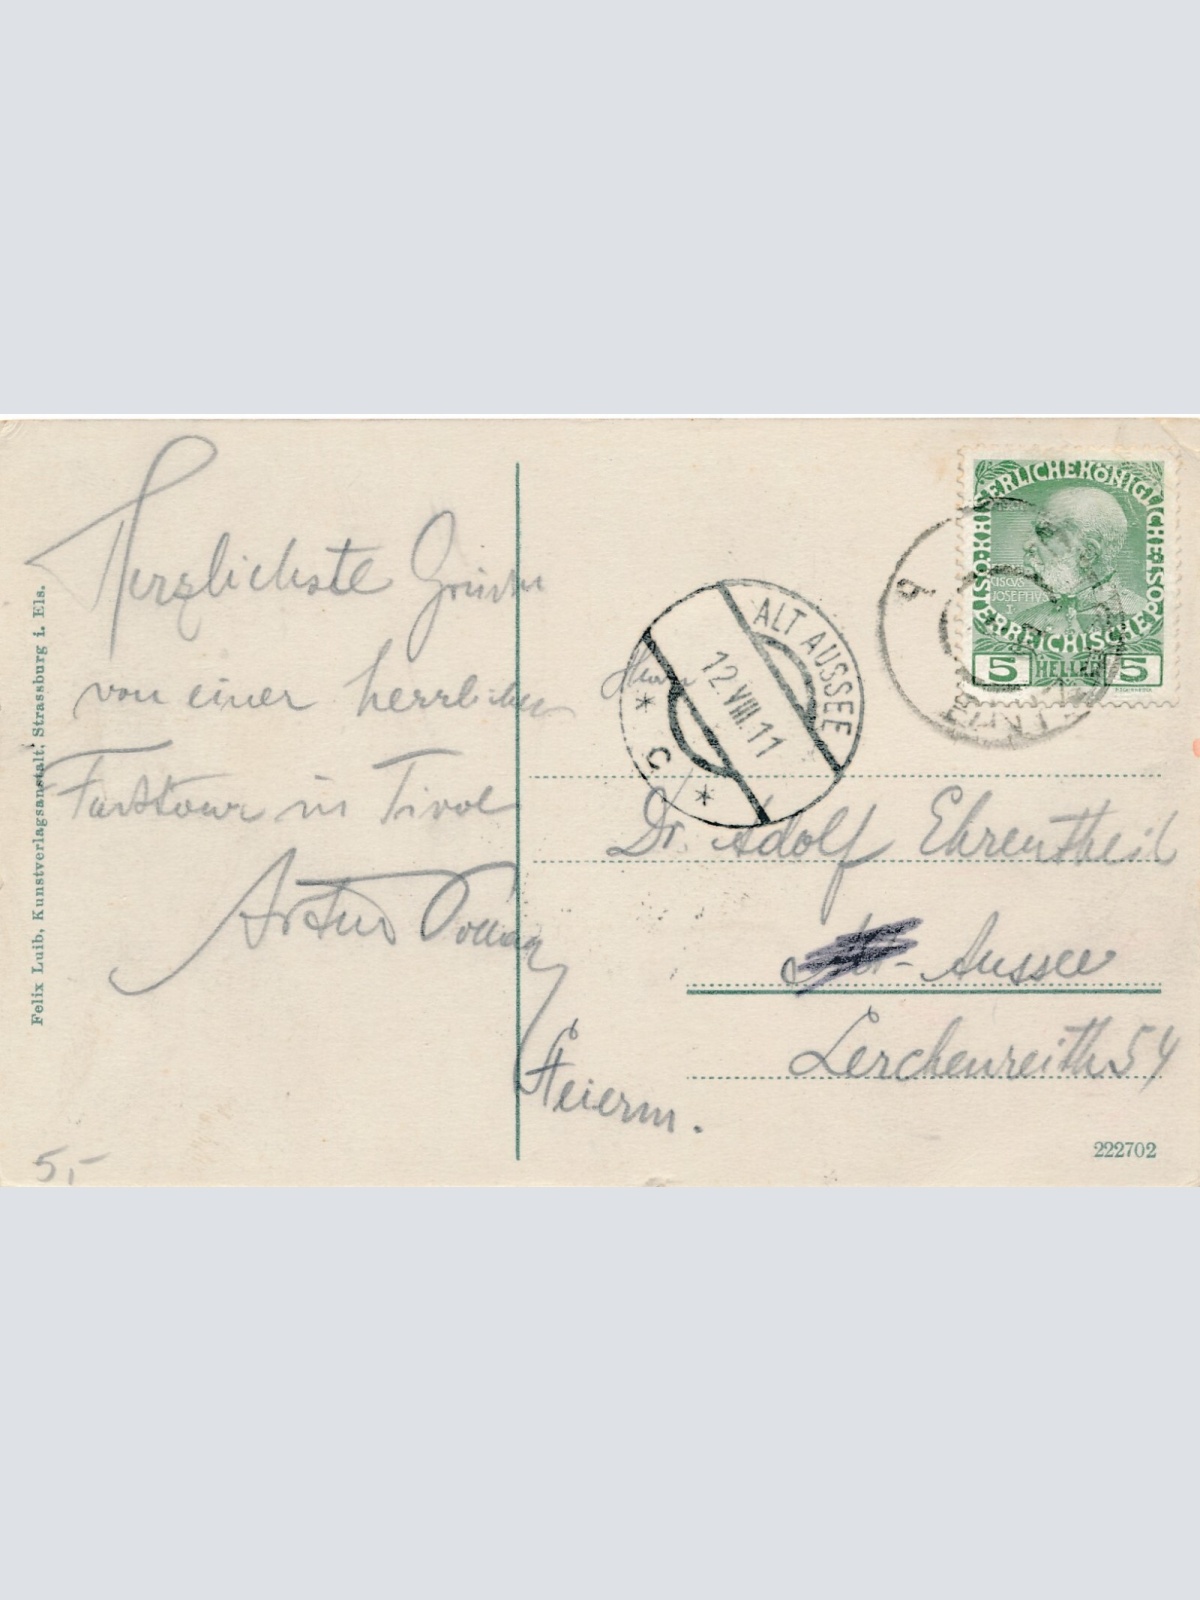 Herzlichste Grüsse
von einer herrlichen
in Tirol
Artur
Felix Luib, Kunstverlagsanstalt, Strassburg i. Els.
5,-
KAISERLICHE KÖNIGLICHE ÖSTERREICHISCHE POST
JOSEPHVS
I
5 HELLER 5
ALT AUSSEE
12.VIII.11
* c *
Herrn
Dr. Adolf Ehrentheil
Aussee
Lerchenreith 54
Steierm.
222702